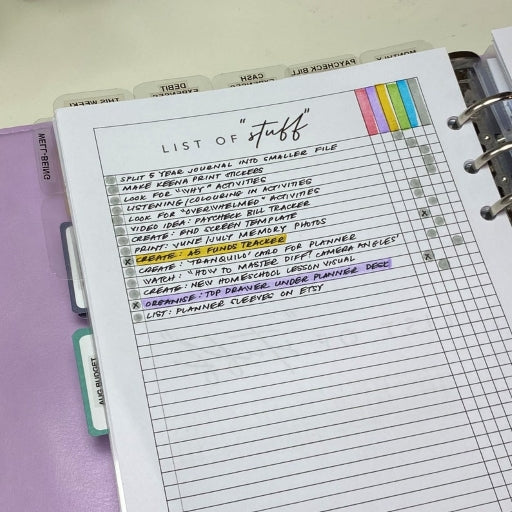 THIS WEEK
DEBIT
CASH
PAYCHECK BILL
MONTHLY
WELL-BEING
LIST OF "stuff"
SPLIT 5 YEAR JOURNAL INTO SMALLER FILE
MAKE KEENA PRINT STICKERS
LOOK FOR "WHY" ACTIVITIES
LISTENING/COLOURING IN ACTIVITIES
LOOK FOR "OVERWHELMED" ACTIVITIES
VIDEO IDEA: PAYCHECK BILL TRACKER
CREATE: END SCREEN TEMPLATE
PRINT: JUNE/JULY MEMORY PHOTOS
x CREATE: A5 FUNDS TRACKER
CREATE: 'TRANQUILO' CARD FOR PLANNER
WATCH: "HOW TO MASTER DIFF! CAMERA ANGLES'
CREATE: NEW HOMESCHOOL LESSON VISUAL
x ORGANISE: TOP DRAWER UNDER PLANNER DESK
LIST: PLANNER SLEEVES ON ETSY
AUG BUDGET